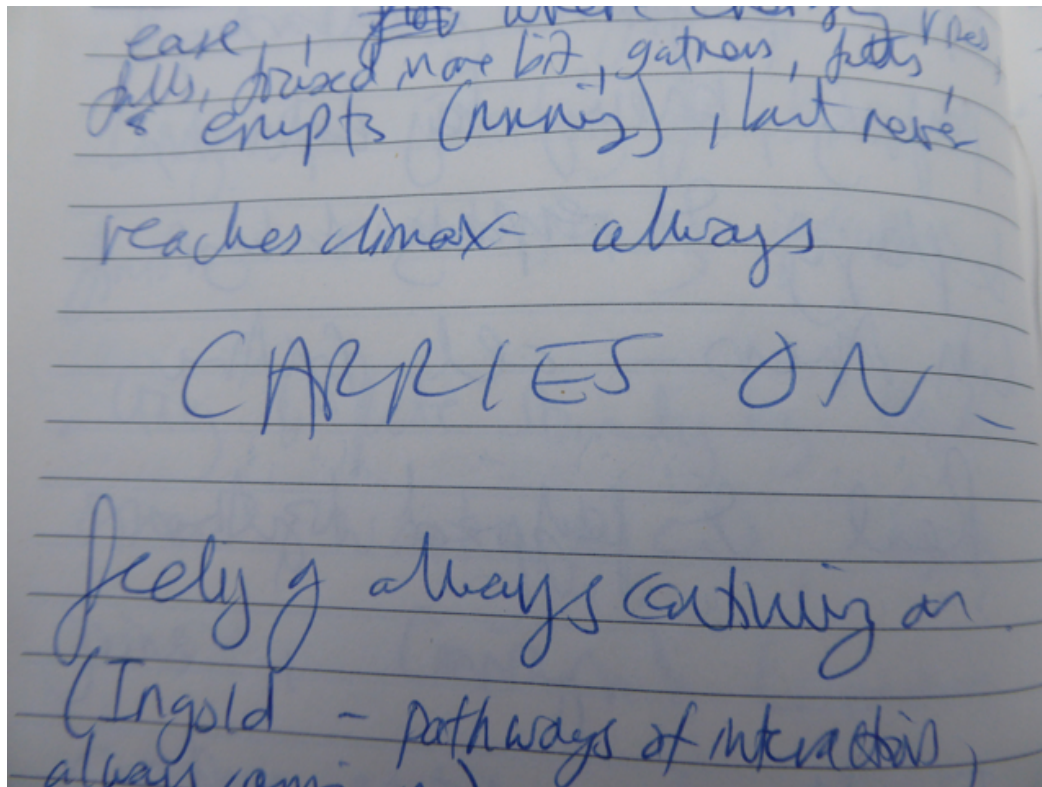 ease, where energy rises
falls, more bit, gathers,
& erupts (running), but never
reaches climax - always
CARRIES ON -
feeling of always continuing on.
(Ingold - pathways of interactions,
always